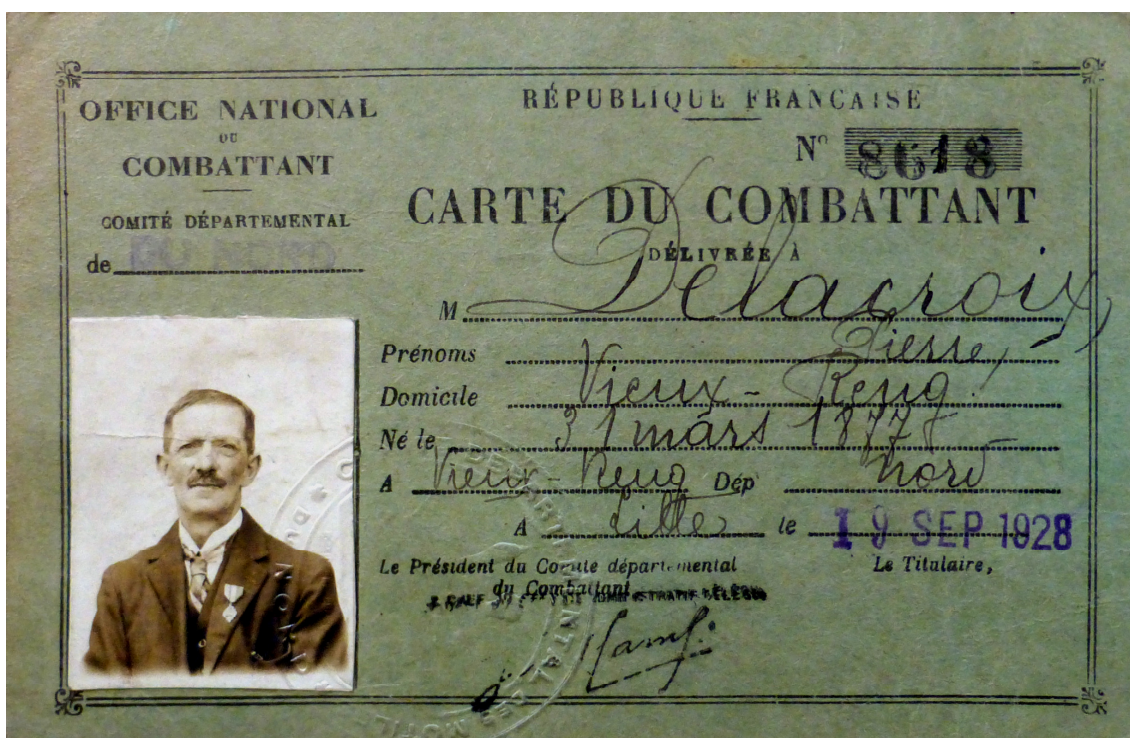 OFFICE NATIONAL
DU
COMBATTANT
COMITÉ DÉPARTEMENTAL
de DU NORD
RÉPUBLIQUE FRANÇAISE
N° 8618
CARTE DU COMBATTANT
DÉLIVRÉE À
M Delacroix
Prénoms Pierre
Domicile Vieux-Reng
Né le 31 mars 1877
A Vieux-Reng Dép Nord
A Lille le 19 SEP 1928
Le Président du Comité départemental
du Combattant
Le Titulaire,